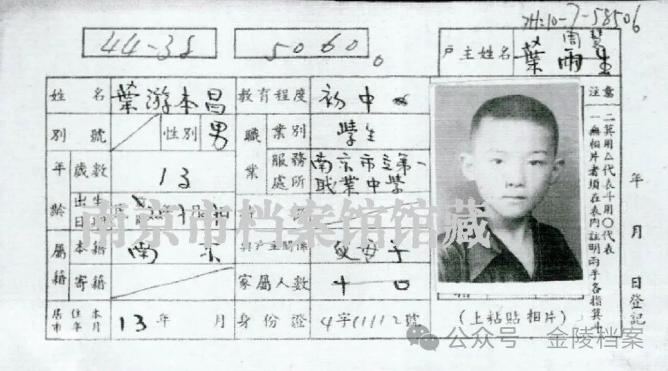 74:10-7-58506
44-38
5060。
戶主姓名 葉雨生
周慧
姓名 葉游本昌 教育程度 初中
別號 性別 男 職業 業別 學生
年齡 歲數 13 服務處所 南京市立第一職業中學
出生日
屬籍 本籍 南京 與戶主關係 父子
寄籍 家屬人數 十口
居住本市年月 13年 月 身份證 4字11112號
注意
二箕用△代表斗用〇代表
一無相片者須在表內註明兩手各指箕斗
(上粘貼相片)
年 月 日登記
南京市档案馆馆藏
公众号·金陵档案